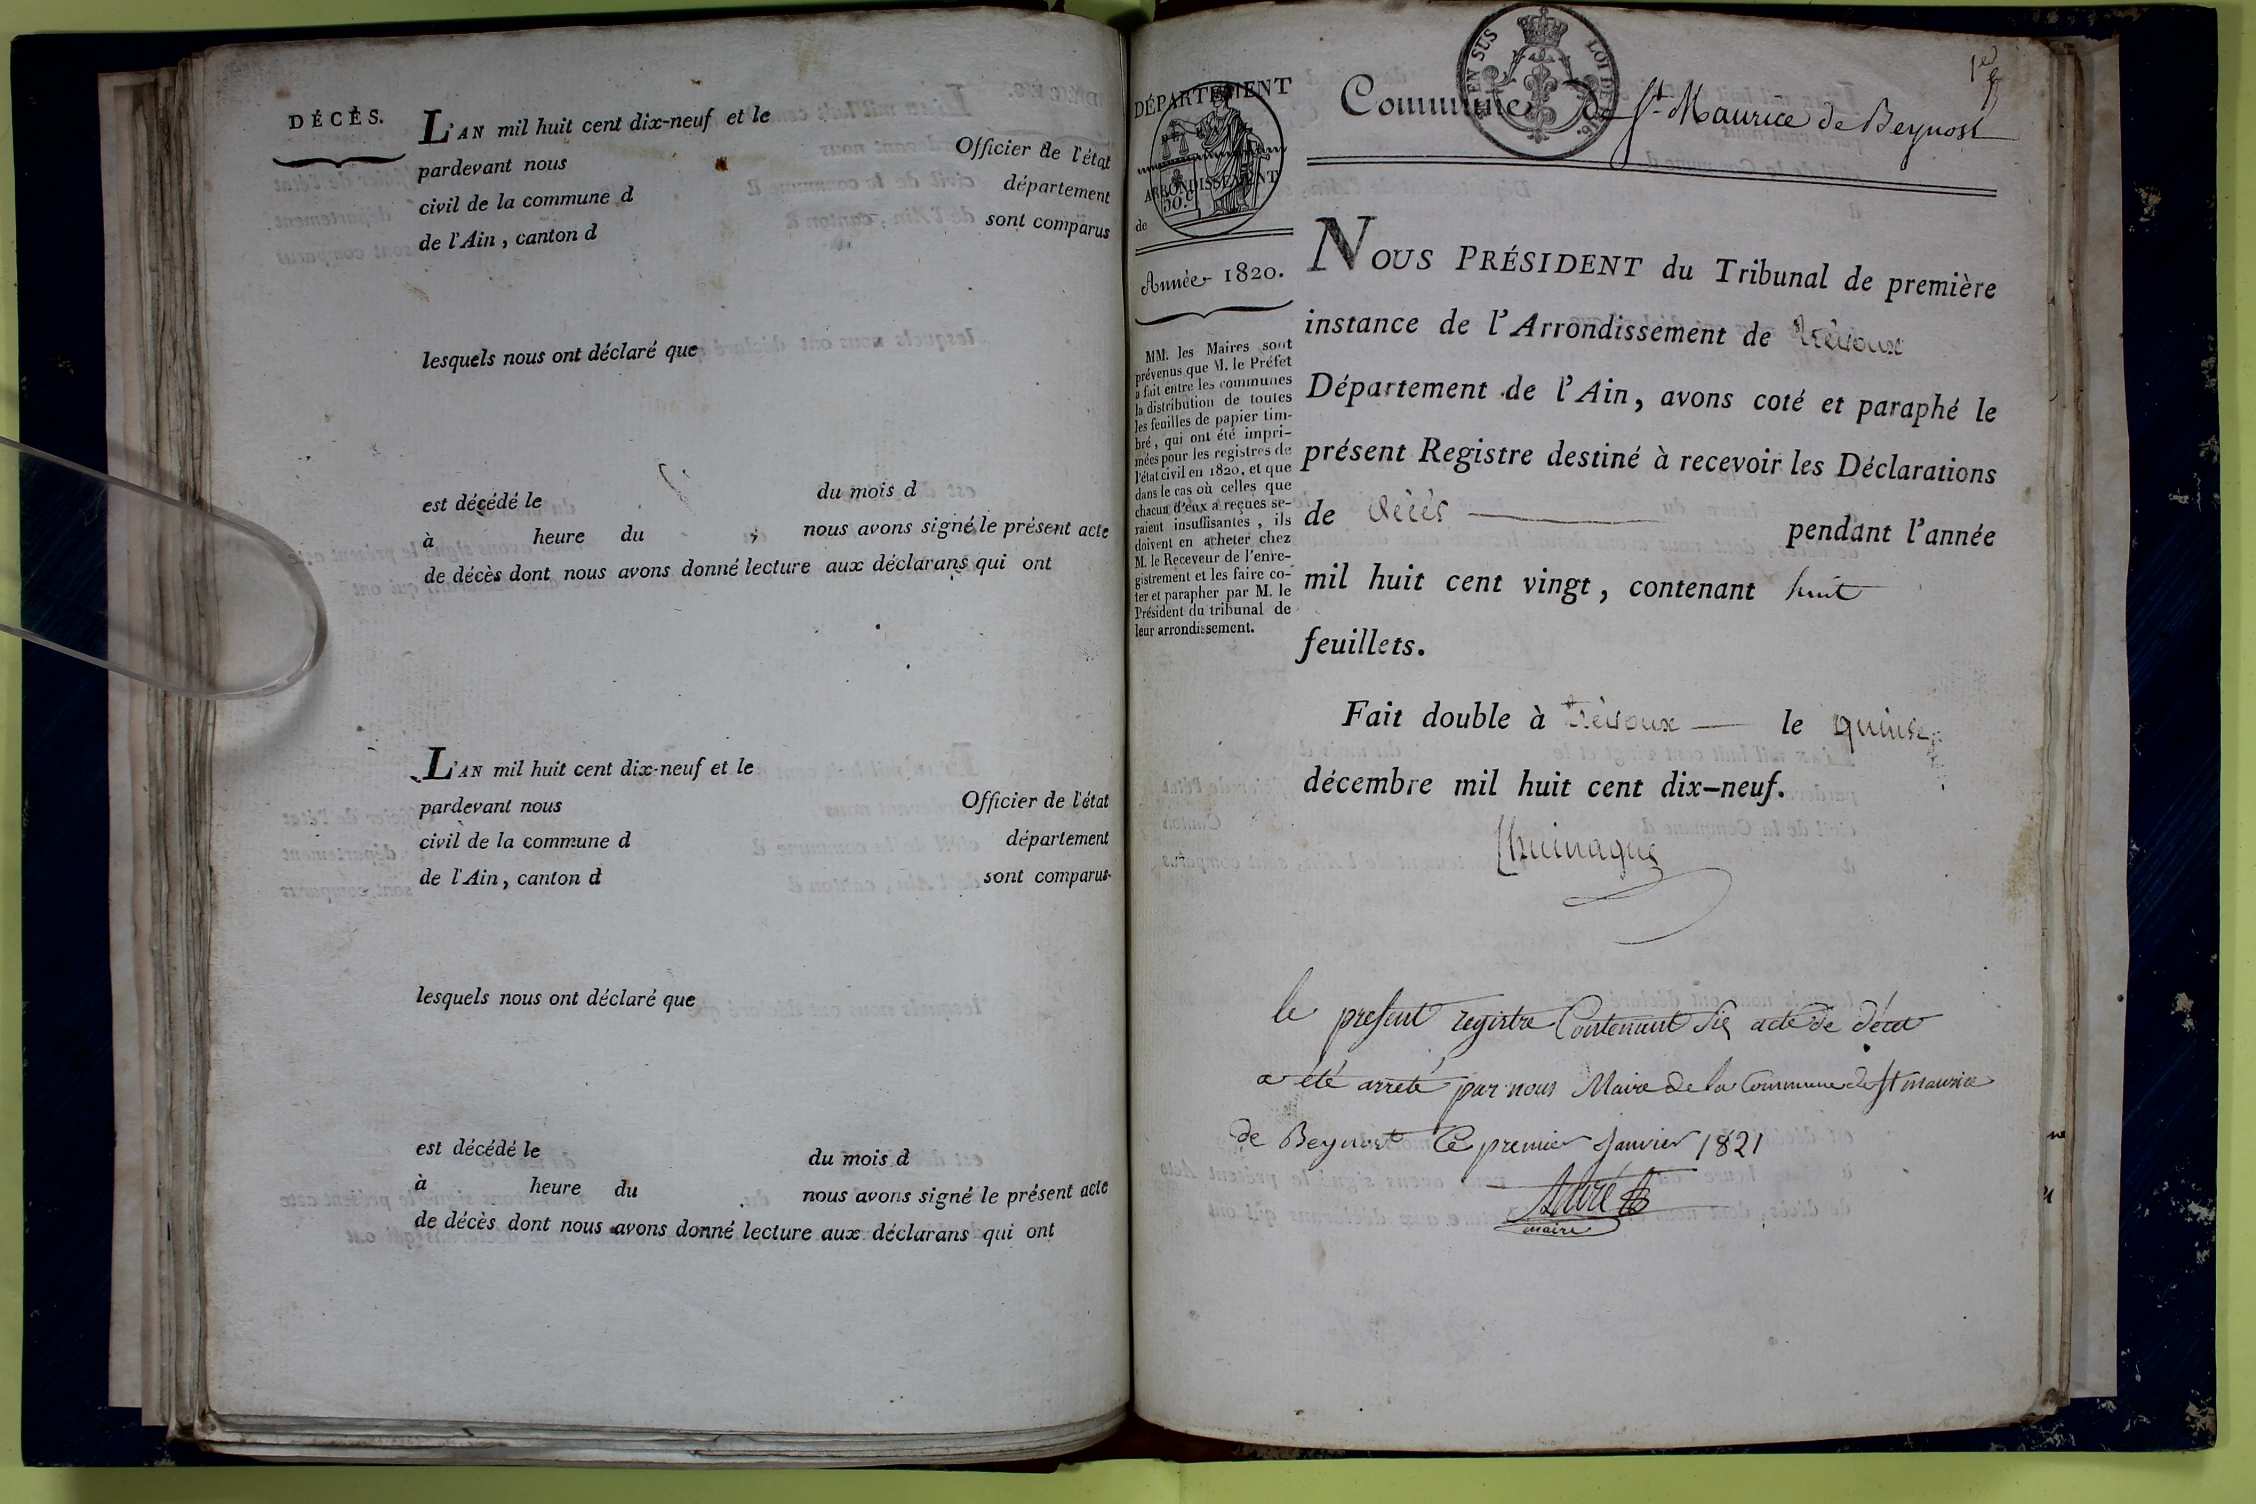 DÉCÈS.
L'AN mil huit cent dix-neuf et le
pardevant nous Officier de l'état
civil de la commune d département
de l'Ain, canton d sont comparus
lesquels nous ont déclaré que
est décédé le du mois d
à heure du , nous avons signé le présent acte
de décès dont nous avons donné lecture aux déclarans qui ont
L'AN mil huit cent dix-neuf et le
pardevant nous Officier de l'état
civil de la commune d département
de l'Ain, canton d sont comparus
lesquels nous ont déclaré que
est décédé le du mois d
à heure du , nous avons signé le présent acte
de décès dont nous avons donné lecture aux déclarans qui ont
DÉPARTEMENT
ARRONDISSEMENT
50.c
de
Année 1820.
MM. les Maires sont
prévenus que M. le Préfet
a fait entre les communes
la distribution de toutes
les feuilles de papier tim-
bré, qui ont été impri-
mées pour les registres de
l'état civil en 1820, et que
dans le cas où celles que
chacun d'eux a reçues se-
raient insuffisantes, ils
doivent en acheter chez
M. le Receveur de l'enre-
gistrement et les faire co-
ter et parapher par M. le
Président du tribunal de
leur arrondissement.
EN SUS LOI DE 1816.
1er
Commune de St Maurice de Beynost
NOUS PRÉSIDENT du Tribunal de première
instance de l'Arrondissement de trévoux
Département de l'Ain, avons coté et paraphé le
présent Registre destiné à recevoir les Déclarations
de décès pendant l'année
mil huit cent vingt, contenant huit
feuillets.
Fait double à trévoux le quinze
décembre mil huit cent dix-neuf.
le present registre Contenant six acte de décet
a été arreté par nous Maire de la Commune de St maurice
de Beynost Ce premier Janvier 1821
maire